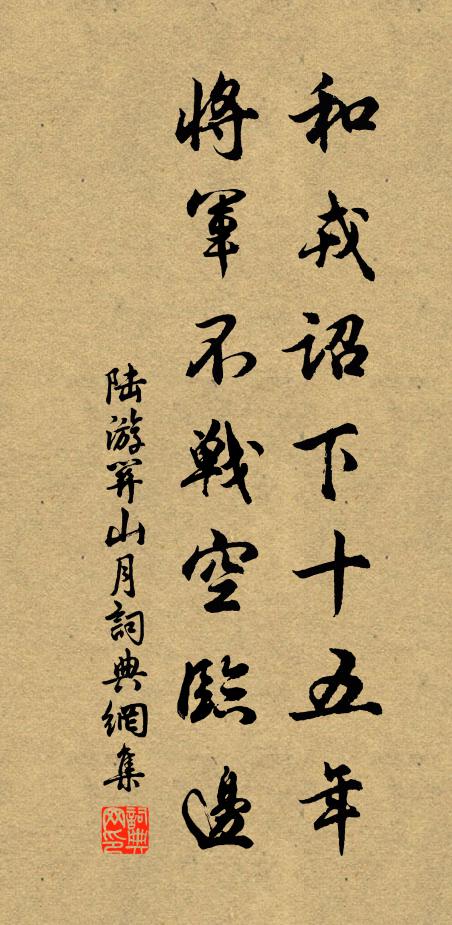 和戎詔下十五年
將軍不戰空臨邊
陆游关山月詞典網集
詞典网印